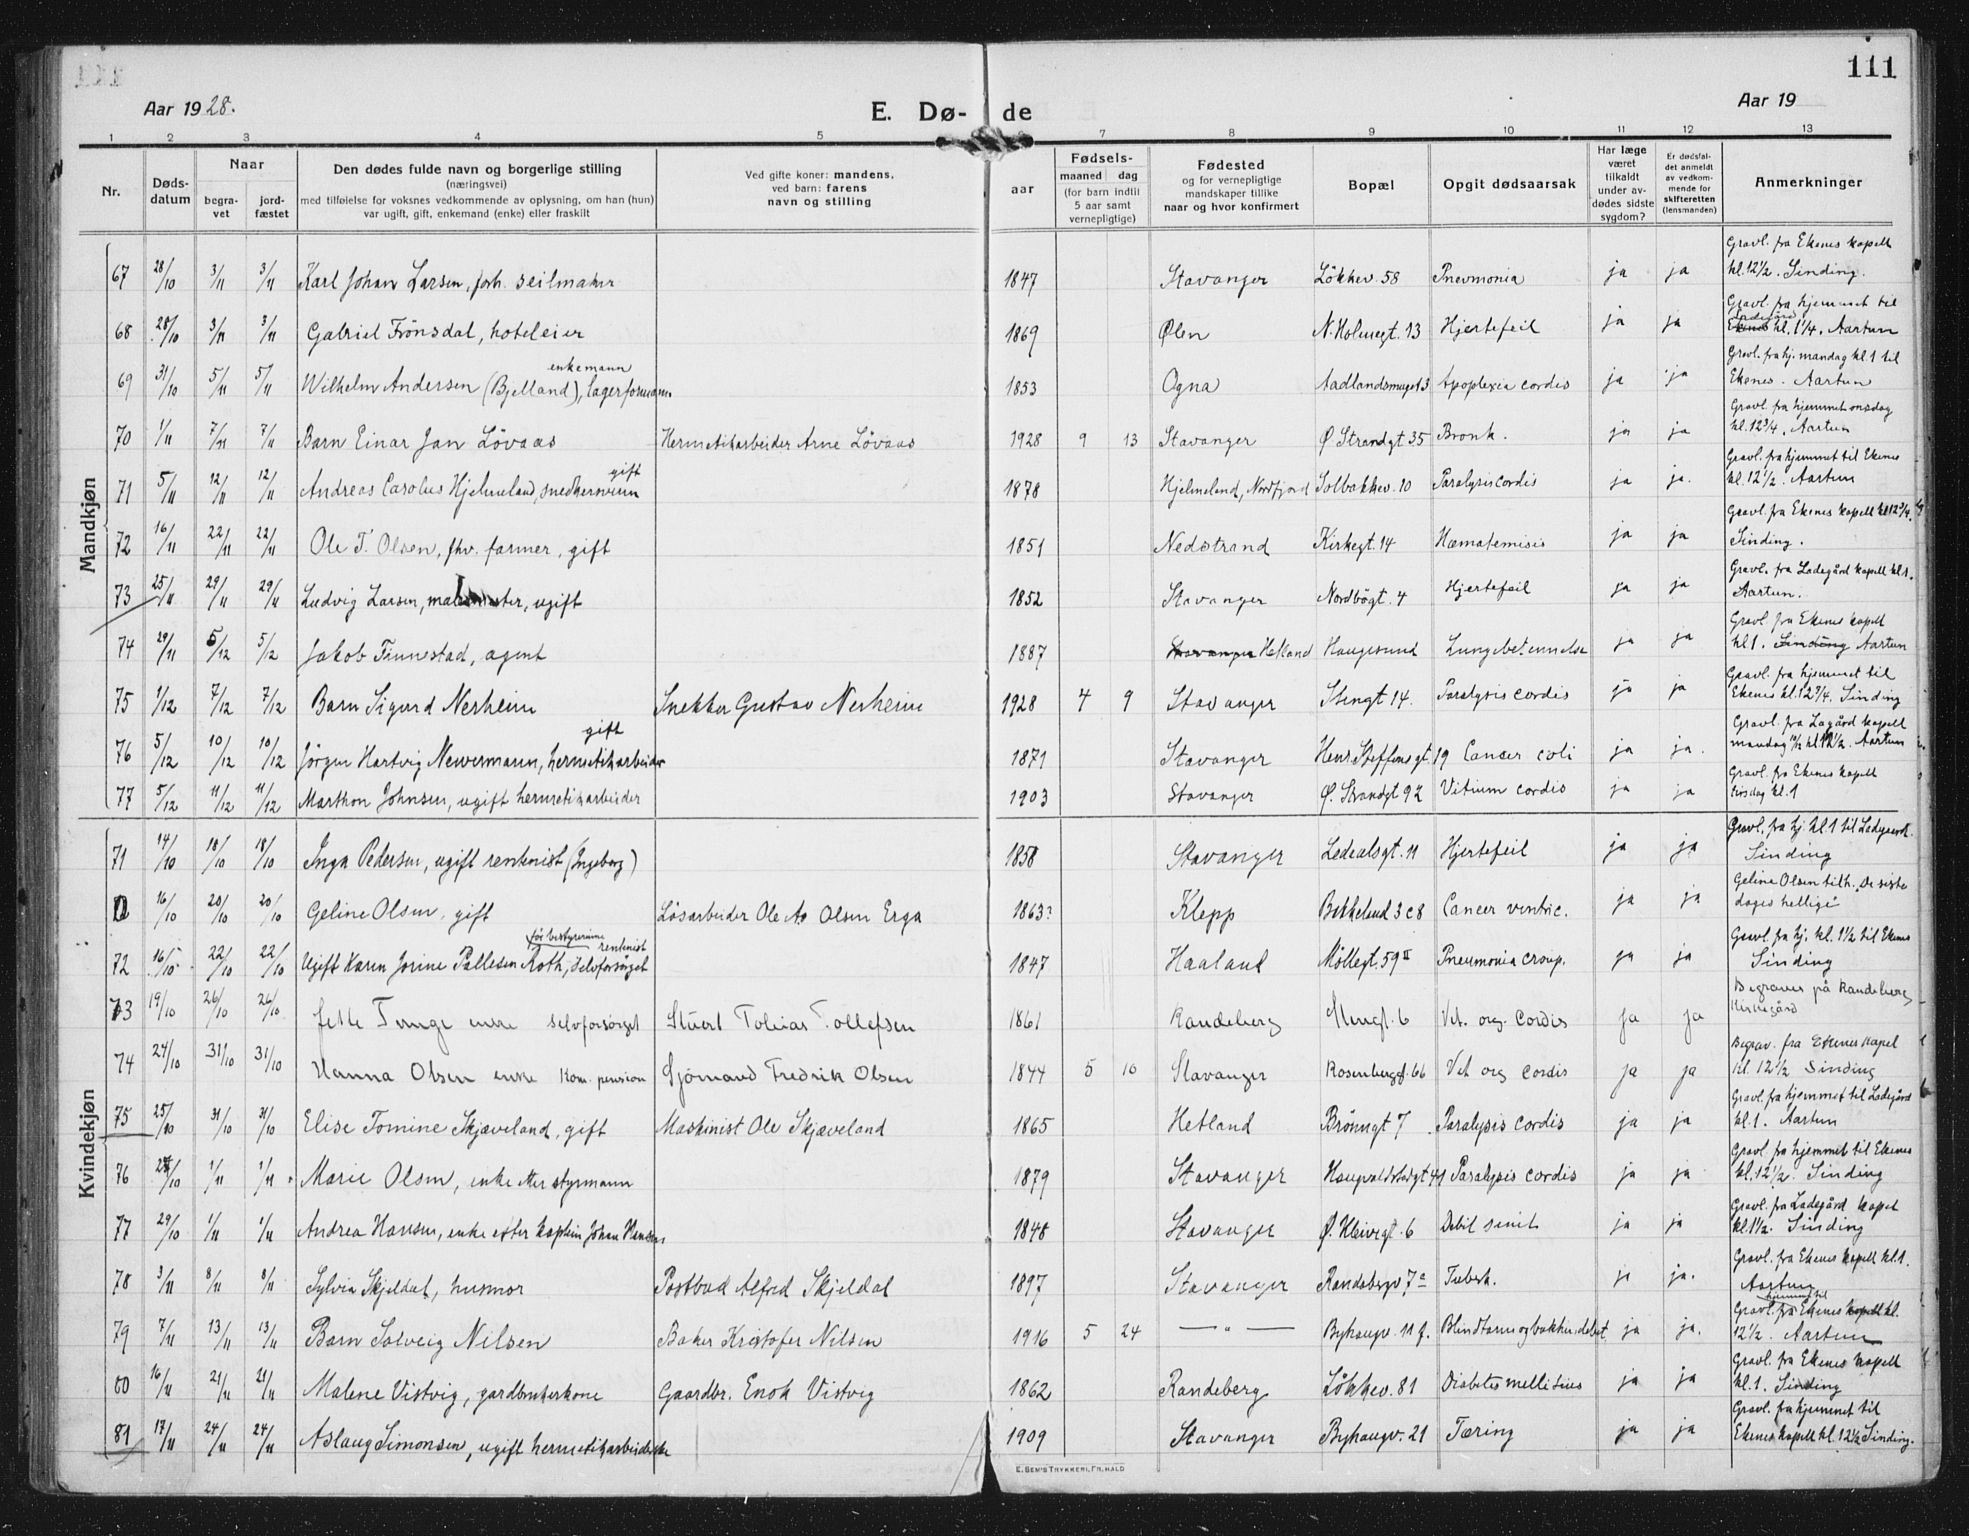 111
Aar 1928.
E. Dø- de
Aar 19
1 2 3 4 5 6 7 8 9 10 11 12 13
Nr.
Døds-datum
Naar
begra-vet
jord-fæstet
Den dødes fulde navn og borgerlige stilling
(næringsvei)
med tilføielse for voksnes vedkommende av oplysning, om han (hun)
var ugift, gift, enkemand (enke) eller fraskilt
Ved gifte koner: mandens,
ved barn: farens
navn og stilling
aar
Fødsels-
maaned dag
(for barn indtil
5 aar samt
vernepligtige)
Fødested
og for vernepligtige
mandskaper tillike
naar og hvor konfirmert
Bopæl
Opgit dødsaarsak
Har læge
været
tilkaldt
under av-
dødes sidste
sygdom?
Er dødsfal-
det anmeldt
av vedkom-
mende for
skifteretten
(lensmanden)
Anmerkninger
Mandkjøn
67 28/10 3/11 3/11 Karl Johan Larsen, forh. seilmaker 1847 Stavanger Løkkev. 58 Pnevmonia ja ja Gravl. fra Ekenes kapell kl. 12 1/2. Sinding.
68 28/10 3/11 3/11 Gabriel Frönsdal, hoteleier 1869 Ølen N. Holmegt. 13 Hjertefeil ja ja Gravl. fra hjemmet til Ekenes kl. 1 1/4. Aartun
69 31/10 5/11 5/11 Wilhelm Andersen (Bjelland), lagerformann enkemann 1853 Ogna Apoplexia cordis ja ja Gravl. fra hj. mandag kl. 1 til Ekenes. Aartun
70 1/11 7/11 7/11 Barn Einar Jan Lövaas Hermetikarbeider Arne Lövaas 1928 9 13 Stavanger Ø. Strandgt 35 Bronk. ja ja Gravl. fra hjemmet onsdag kl. 12 3/4. Aartun
71 5/11 12/11 12/11 Andreas Carolus Hjelmeland, snedkersvenn gift 1878 Hjelmeland, Nordfjord Solbakkev. 10 Paralysis cordis ja ja. Gravl. fra hjemmet til Ekenes kl. 12 1/2. Aartun
72 16/11 22/11 22/11 Ole T. Olsen, fhv. farmer, gift 1851 Nedstrand Kirkegt. 14 Hæmatemisis ja ja Gravl. fra Ekenes kapell kl 12 3/4. Sinding.
73 25/11 29/11 29/11 Ludvig Larsen, ugift 1852 Stavanger Nordbögt. 4 Hjertefeil ja ja Gravl. fra Ladegård kapell kl 1. Aartun.
74 29/11 5/12 5/12 Jakob Finnestad, agent 1887 Stavanger Hetland Haugesund Lungebetennelse ja ja Gravl. fra Ekenes kapell kl 1. Sinding Aartun
75 1/12 7/12 7/12 Barn Sigurd Nerheim Snekker Gustav Nerheim 1928 4 9 Stavanger Stengt 14. Paralysis cordis ja ja Gravl. fra hjemmet til Ekenes kl. 12 3/4. Sinding
76 5/12 10/12 10/12 Jörgen Hartvig Newermann, hermetikarbeider gift 1871 Stavanger Henr. Steffensgt. 19 Cancer coli ja ja. Gravl. fra Lagård kapell mandag 10/12 kl. 12 1/2. Aartun
77 5/12 11/12 11/12 Marthon Johnsen, ugift hermetikarbeider 1903 Stavanger Ø. Strandgt 92 Vitium cordis ja ja Gravl. fra Ekenes kapell tirsdag kl. 1
Kvindekjøn
71 14/10 18/10 18/10 Inga Pedersen, ugift rentenist (Ingeborg) 1858 Stavanger Ledealsgt. 11 Hjertefeil ja ja. Gravl. fra hj. kl. 1 til Ladegaard. Sinding
D 16/10 20/10 20/10 Geline Olsen, gift Løsarbeider Ole As Olsen Erga 1863? Klepp Bekkelund 3 c 8 Cancer ventric. ja ja Geline Olsen tilh. De siste dages hellige
72 16/10 22/10 22/10 Ugift Karen Jorine Pallesen Roth, selvforsørget for bestyrerinne rentenist 1847 Haaland Möllegt. 59 II Pneumonia croup. ja ja Gravl. fra hj. kl. 1 1/2 til Ekenes Sinding
73 19/10 26/10 26/10 Jette Tunge enke selvforsørget Stuert Tobias Tollefsen 1861 Randeberg Stengt. 6 Vit. org. Cordis ja ja Begraves på Randeberg Kirkegård
74 24/10 31/10 31/10 Hanna Olsen enke Kom. pension Sjömand Fredrik Olsen 1844 5 16 Stavanger Rosenbergsgt. 66 Vit org cordis ja ja Begrav. fra Ekenes kapel kl. 12 1/2 Sinding
75 25/10 31/10 31/10 Elise Tomine Skjæveland, gift Maskinist Ole Skjæveland 1865 Hetland Brönngt 7 Paralysis cordis ja ja Gravl. fra hjemmet til Ladegård kl. 1. Aartun
76 /10 1/11 1/11 Marie Olsen, enke etter styrmann 1879 Stavanger Paralysis cordis ja ja Gravl. fra hjemmet til Ekenes kl. 12 1/2. Sinding
77 29/10 1/11 1/11 Andrea Hansen, enke efter kaptein Johan Hansen 1848 Stavanger Ø. Kleivgt. 6 Debil senit ja ja Gravl. fra Ladegård kapel kl. 1 1/2. Sinding
78 3/11 8/11 8/11 Sylvia Skjeldal, husmor Postbud Alfred Skjeldal 1897 Stavanger Randabergv 7a Tuberk. ja ja. Gravl. fra Ekenes kapell kl. 1. Aartun
79 7/11 13/11 13/11 Barn Solveig Nilsen Baker Kristofer Nilsen 1916 5 24 — " — Byhaugv. 11 f. ja ja. Gravl. fra hjemmet til Ekenes kapell kl. 12 1/2. Aartun
80 16/11 21/11 21/11 Malene Vistvig, gardbrukerkone Gaardbr. Enok Vistvig 1862 Randeberg Løkkev. 81 Diabetes mellitus ja ja Gravl. fra Ekenes kapell kl. 1. Sinding
81 17/11 24/11 24/11 Aslaug Simonsen, ugift hermetikarbeiderske 1909 Stavanger Byhaugv. 21 Tæring ja ja Gravl. fra hjemmet til Ekenes kapell kl. 12 1/2 Sinding.
E. SEM'S TRYKKERI, FR. HALD